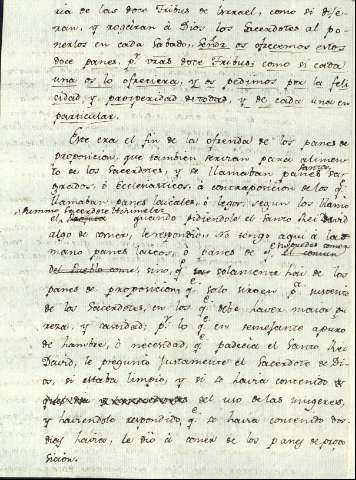 ria de las doce Tribus de Ysrael, como si dije-
ran, y rogaran á Dios los Sacerdotes al po-
nerlos en cada Sabado, Señor os ofrecemos estos
doce panes, pr. vras doce Tribus como si cada
una os lo ofreciera, y os pedimos por la feli
cidad, y prosperidad de todas, y de cada una en
particular.
Este era el fin de la ofrenda de los panes de
proposicion, que tambien servian para alimen-
to de los Sacerdotes, y se llamaban panes Santos Sa-
grados, ó Eclesiasticos, á contraposicion de los qe.
llamaban panes laicales, ó legos, segun los llamó
el Summo Sacerdote Achimelec quando pidiendole el Santo Rei David
algo de comer, le respondió. No tengo aqui á la
mano panes laicos, ó panes de qe. el comun
del Pueblo come, sino, qe. solamente hai de los
panes de proposicion qe. solo sirven pa. sustento
de los Sacerdotes, en los qe. debe haver maior pu
reza, y santidad; pr. lo qe. en semejante apuro
de hambre, ó necesidad, qe. padecia el Santo Rei
David, le preguntó justamente el Sacerdote de Di-
os, si estaba limpio, y si se havia contenido
del uso de las mugeres,
y haviendole respondido, qe. se havia contenido dos
dias havia, le dió á comer de los panes de propo
sicion.